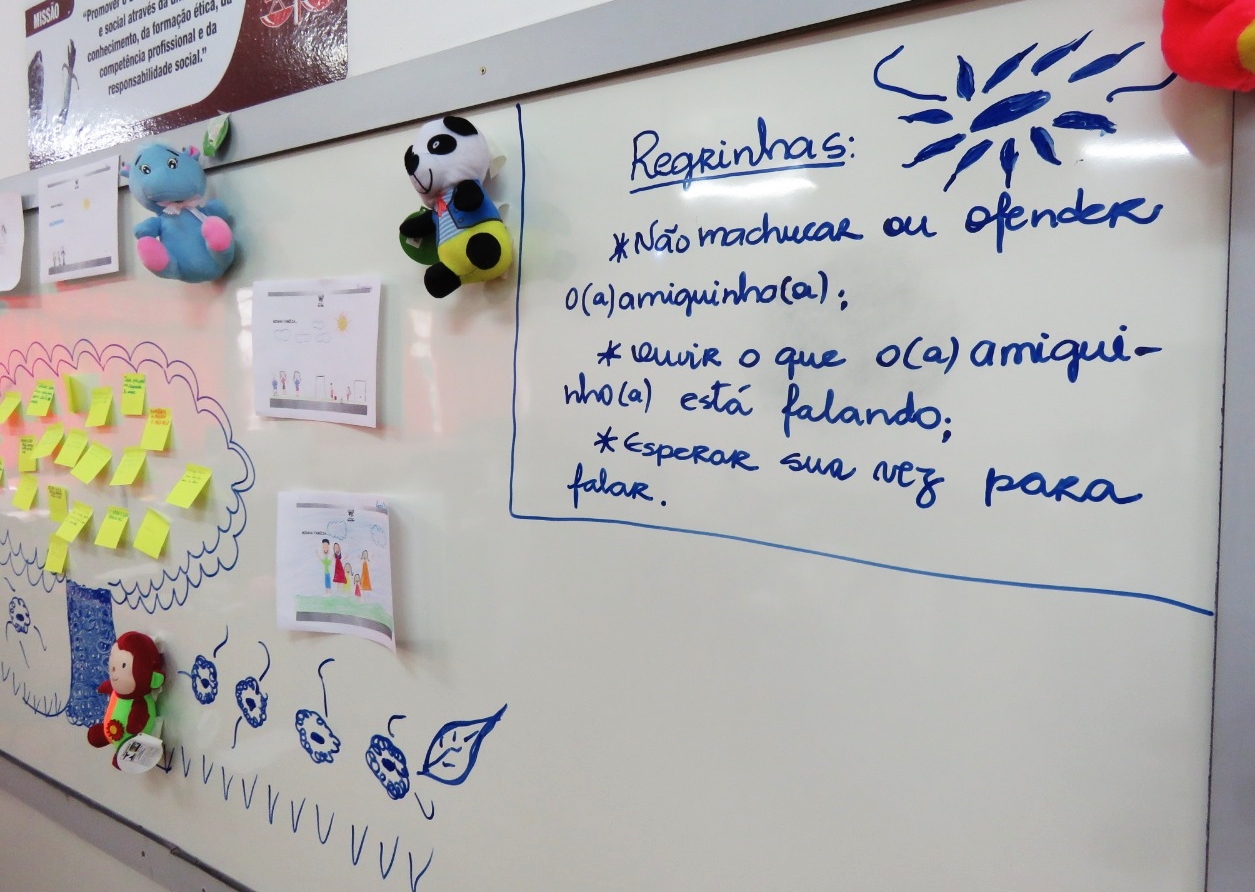 MISSÃO
"Promover o
e social através da
conhecimento, da formação ética, da
competência profissional e da
responsabilidade social."
Regrinhas:
*Não machucar ou ofender
o(a) amiguinho(a);
* Ouvir o que o(a) amigui-
nho(a) está falando;
*Esperar sua vez para
falar.